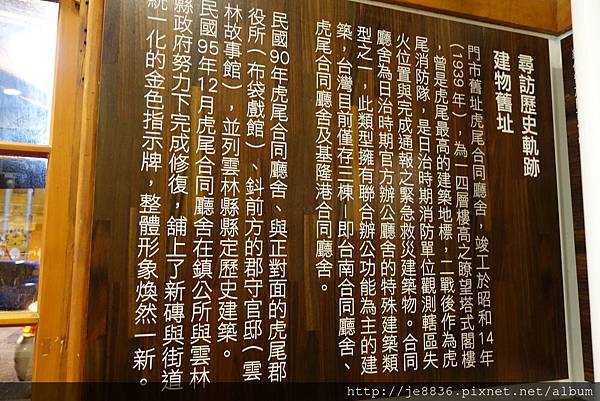 尋訪歷史軌跡
建物舊址
門市舊址虎尾合同廳舍，竣工於昭和14年
(1939年)，為一四層樓高之瞭望塔式閣樓
，曾是虎尾最高的建築地標，二戰後作為虎
尾消防隊，是日治時期消防單位觀測轄區失
火位置與完成通報之緊急救災建築物。合同
廳舍為日治時期官方辦公廳舍的特殊建築類
型之一，此類型擁有聯合辦公功能為主的建
築，台灣目前僅存三棟，即台南合同廳舍、
虎尾合同廳舍及基隆港合同廳舍。
民國90年虎尾合同廳舍、與正對面的虎尾郡
役所（布袋戲館）、斜前方的郡守官邸（雲
林故事館），並列雲林縣縣定歷史建築。
民國95年12月虎尾合同廳舍在鎮公所與雲林
縣政府努力下完成修復，舖上了新磚與街道
統一化的金色指示牌，整體形象煥然一新。
http://je8836.pixnet.net/album